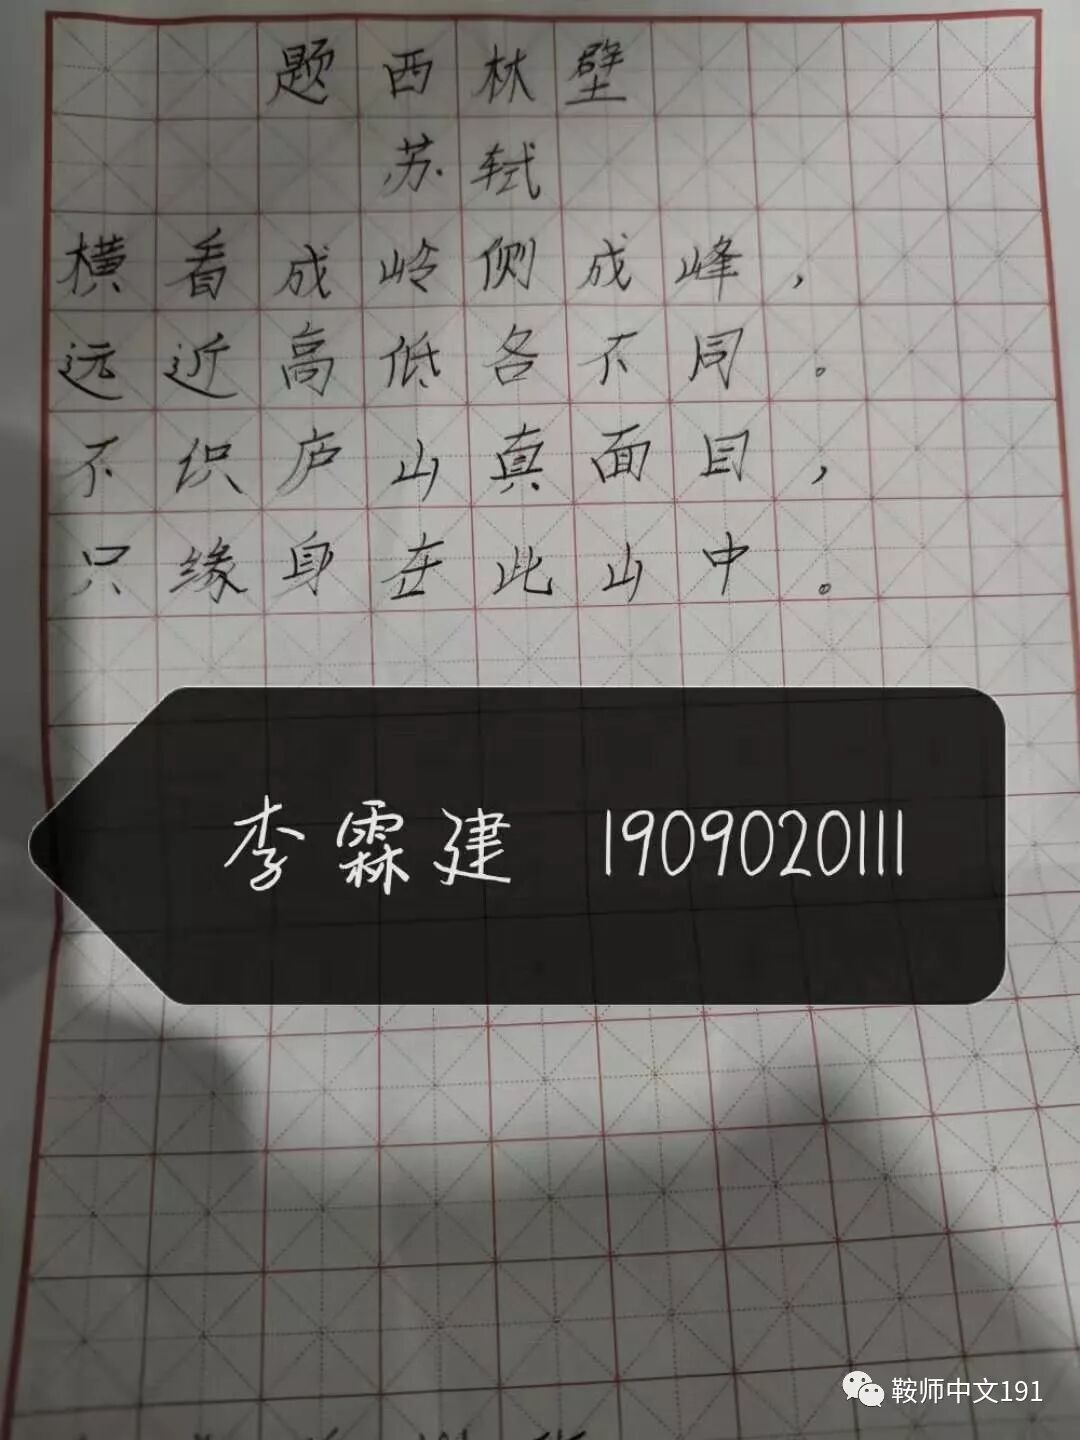 题西林壁
苏轼
横看成岭侧成峰，
远近高低各不同。
不识庐山真面目，
只缘身在此山中。
李霖建 1909020111
鞍师中文191